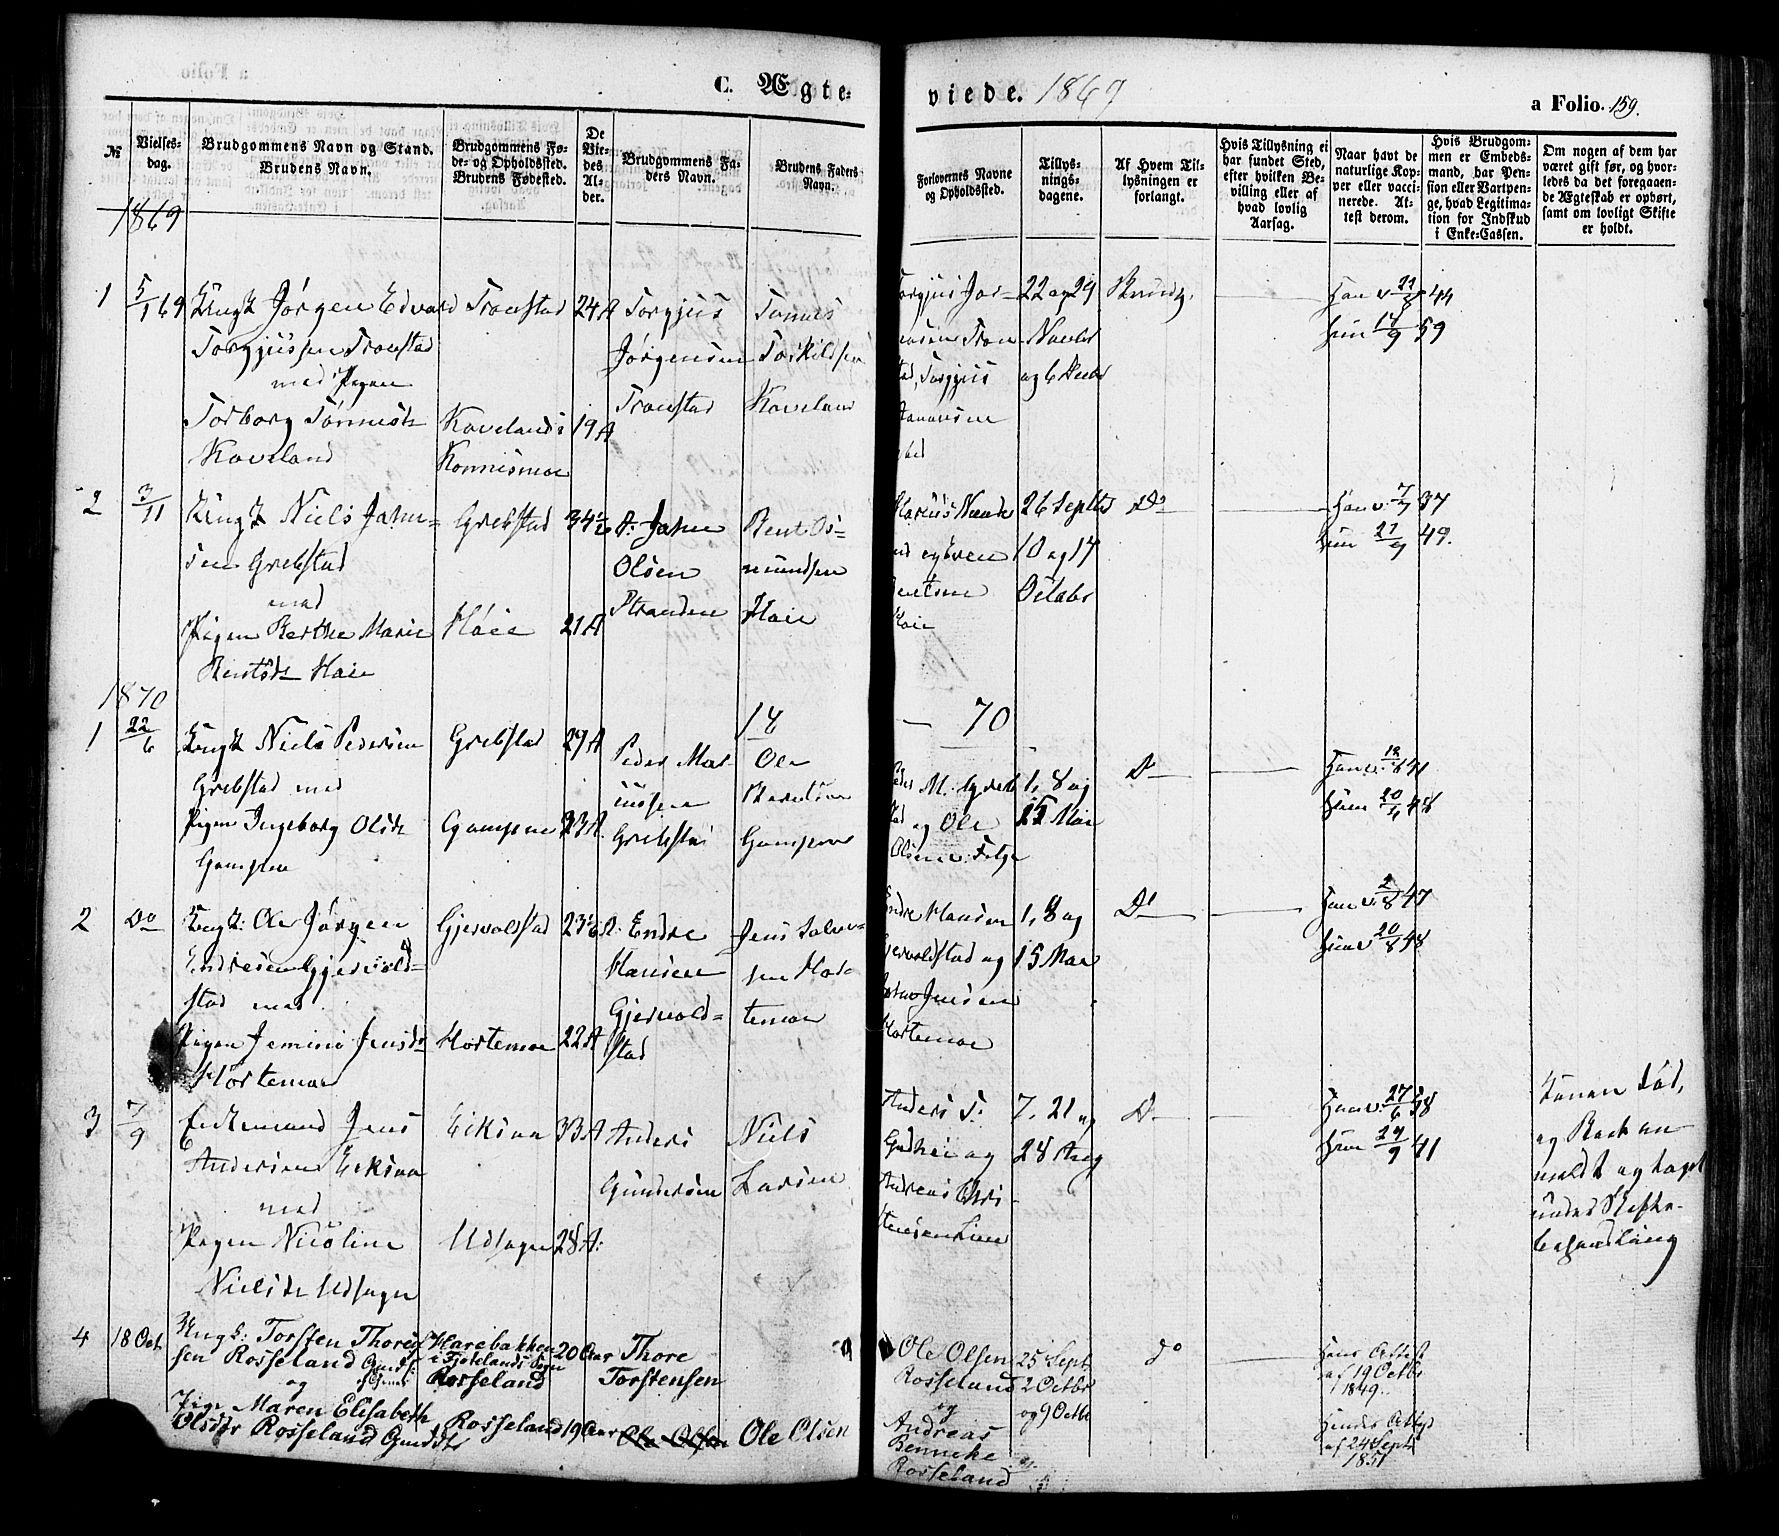 C. Ægte-
viede. 1869
a Folio. 159.
№
Vielses-
dag.
Brudgommens Navn og Stand.
Brudens Navn.
Brudgommens Fø-
de- og Opholdssted.
Brudens Fødested.
De
Vie-
des
Al-
der.
Brudgommens Fa-
ders Navn.
Brudens Faders
Navn.
Forlovernes Navne
og Opholdssted.
Tillys-
nings-
dagene.
Af Hvem Til-
lysningen er
forlangt.
Hvis Tillysning ei
har fundet Sted,
efter hvilken Be-
villing eller af
hvad lovlig
Aarsag.
Naar havt de
naturlige Kop-
per eller vacci-
nerede. At-
test derom.
Hvis Brudgom-
men er Embeds-
mand, har Pen-
sion eller Vartpen-
ge, hvad Legitima-
tion for Indskud
i Enke-Cassen.
Om nogen af dem har
været gift før, og hvor-
ledes da det foregaaen-
de Ægteskab er ophørt,
samt om lovligt Skifte
er holdt.
1869
1
5/1 69
Ungk Jørgen Edvard
Torgjussen Tronstad
med Pigen
Torborg Tønnesdt
Kaveland
Tronstad
Kaveland i
Konnismoe
24 A
19 A
Torgjus
Jørgensen
Tronstad
Tønnes
Torkildsen
Kaveland
22 og 29
Novbr
og 6 Decbr
Brudg.
Han v. 21/8 44
Hun 14/9 59
2
3/11
Ungk Niels Jahn-
sen Grebstad
med
Pigen Berthe Marie
Bentsdt Haie
Grebstad
Haie
34½
21 A
Jahn
Olsen
Stranden
Bent Os-
mundsen
Haie
26 Septbr
10 og 17
Octobr
Do
Han v. 7/7 37
Hun 21/9 49.
1870
18
— 70
1
22/6
Ungk Niels Pedersen
Grebstad med
Pigen Ingeborg Olsdt
Gampen
Grebstad
Gampen
29 A
23 A.
Peder Mat-
iussen
Grebstad
Ole
Berentsen
Gampen
M. Greb
stad
og Ole
Olsen
1, 8 og
15 Mai
Do
Han v. 18/6 41
Hun 20/4 48
2
Do
Ungk: Ole Jørgen
Endresen Gjervold-
stad med
Pigen Jemine Jensdt
Hortemoe
Gjervoldstad
Hortemoe
23½ A.
22 A
Endre
Hansen
Gjervold-
stad
Jens Salve-
sen Hor-
temoe
Endre Hansen
Gjervoldstad og
Jensen
Hortemoe
1, 8 og
15 Mai
Do
Han v. 2/8 47
Hun v 20/8 48
3
7/9
Enkemand Jens
Andersen Eiksaa
med
Pigen Nicoline
Nielsdt Udsagn
Eiksaa
Udsagn
33 A
28 A:
Anders
Gundersen
Niels
Larsen
Anders
og
Andreas Chri-
stensen
7. 21 og
28 Aug
Do
Han v. 27/6 38
Hun 29/9 41
Konen død,
og Boet an-
meldt og taget
under Skifte-
behandling
4
18 Oct.
Ungk: Torsten Thores-
sen Rosseland
og
Pige Maren Elisabeth
Olsdtr Rosseland Gmdtr
Harebakken
i Fjotelands Sogn
Rosseland
Rosseland
20 Aar
19 Aar
Thore
Torstensen
Ole Olsen
Ole Olsen
Ole Olsen
Rosseland
og
Andreas
Benneke
Rosseland
25 Sept
2 Octbr
og 9 Octb
do
Hans Attest
af 19 Octbr
1849.
Hendes Attest
af 24 Sept
1851